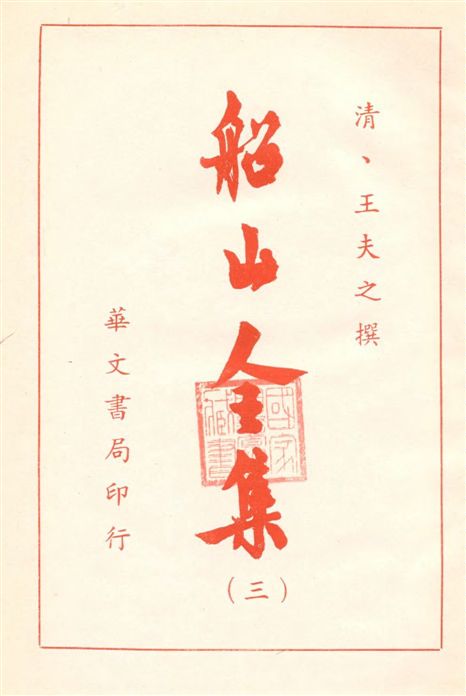 清、王夫之撰
船山全集
(三)
華文書局印行